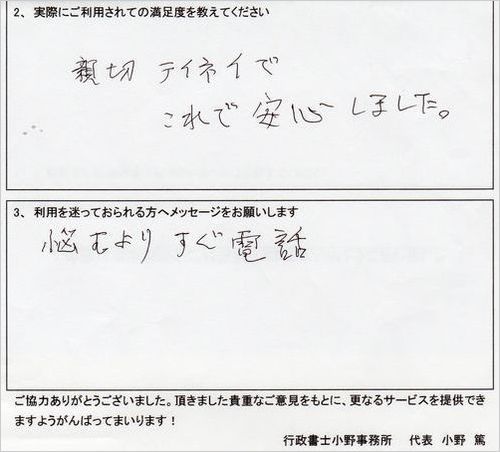 2、実際にご利用されての満足度を教えてください
親切 テイネイで
これで 安心しました。
3、利用を迷っておられる方へメッセージをお願いします
悩むより すぐ電話
ご協力ありがとうございました。頂きました貴重なご意見をもとに、更なるサービスを提供でき
ますようがんばってまいります！
行政書士小野事務所　代表 小野 篤